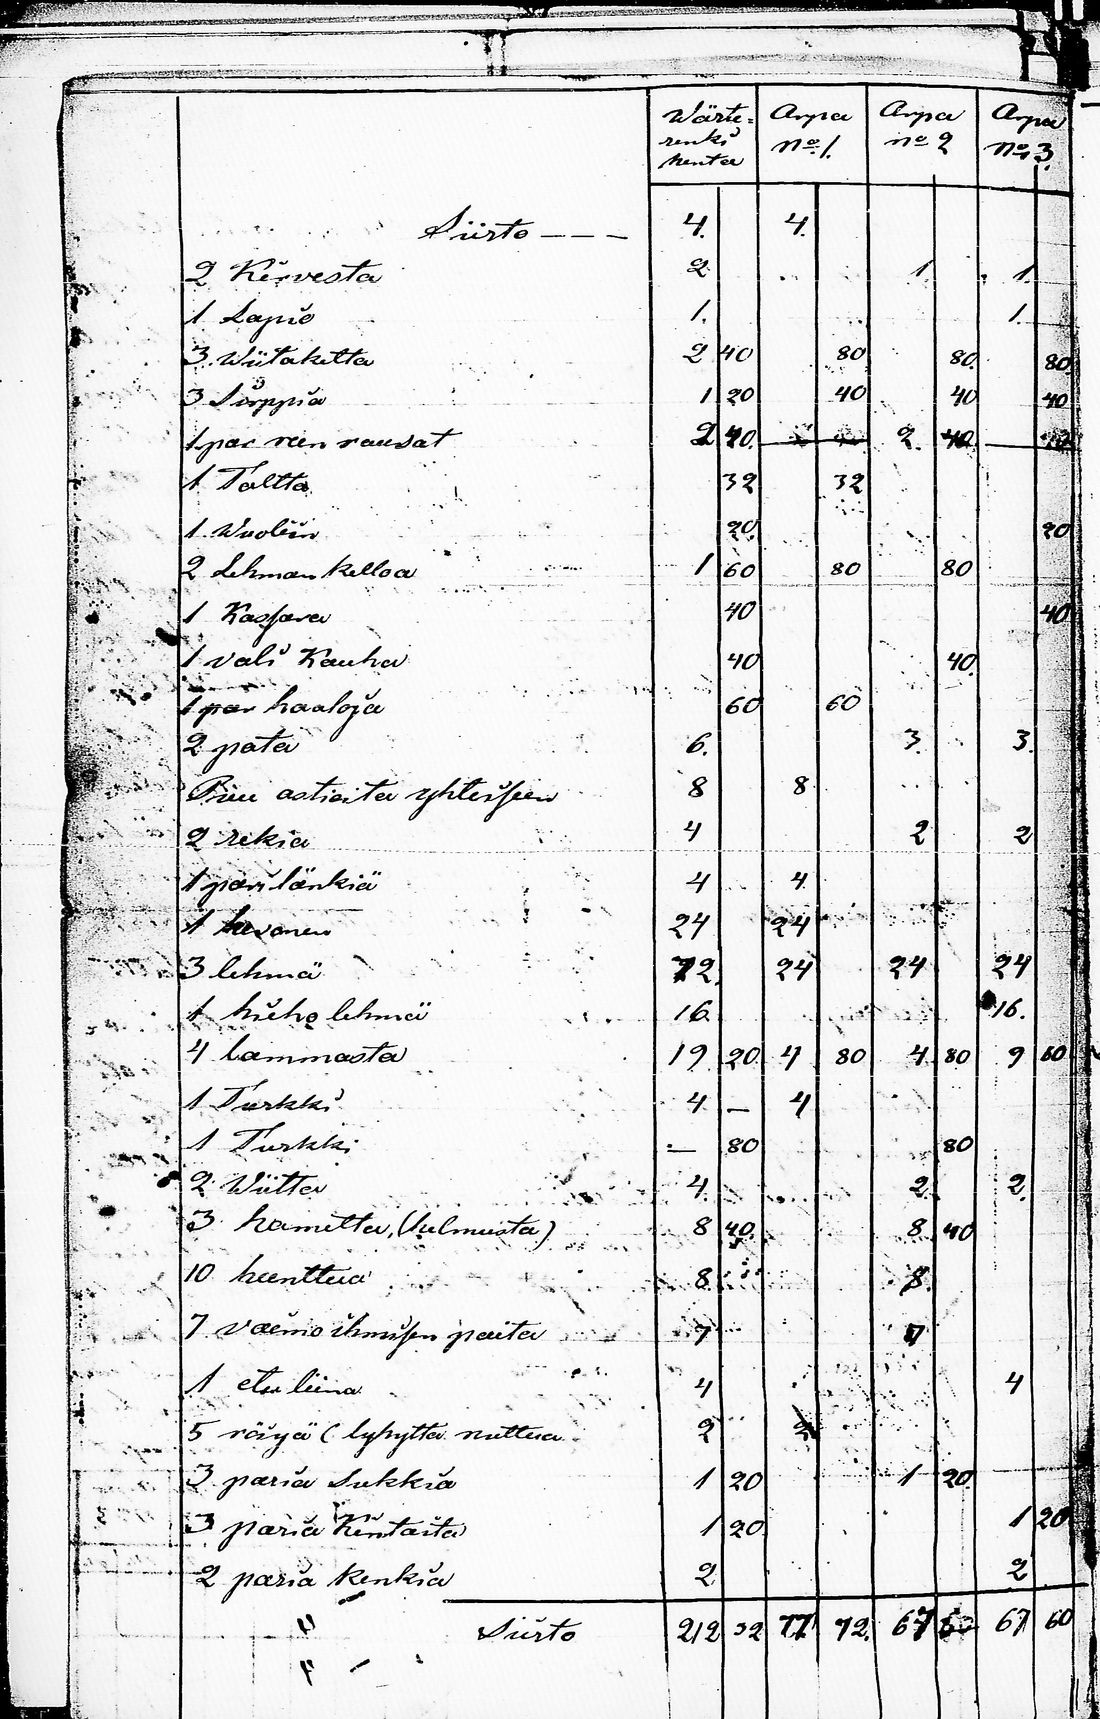 Wärte= Arpa Arpa Arpa
renki No 1. no 2 No 3.
henta
Siirto — — — 4. 4.
2 Kirvesta 2 1. 1.
1 Lapio 1. 1.
3 Wiitaketta 2 40 80 80. 80.
3 Sirppiä 1 20 40 40 40
1 par reen rausat 2 40. 2. 40
1 Taltta 32 32
1 Wuolin 20. 20
2 Lehman kelloa 1 60 80 80
1 Kassara 40 40
1 vali Kauha 40 40.
1 par haaloja 60 60
2 pata 6. 3. 3.
Puu astioita yhteisseen 8 8
2 rekiä 4 2 2
1 pari länkiä 4 4.
1 hevonen 24 24
3 lehmä 72. 24 24 24
1 hieho lehmä 16. 16.
4 lammasta 19 20. 4 80 4 80 9 60
1 Turkki 4 — 4
1 Turkki — 80 80
2 Wiitta 4. 2. 2.
3 hametta, (Sulmusta) 8 40. 8 40
10 hunttua 8 8.
7 vaimo ihmisen paita 7 7
1 etu liina 4 4
5 röijyä ( lyhyttä nuttua 2 2
3 pariä Sukkia 1 20 1 20.
3 pariä Kintaita 1 20 1 20
2 pariä kenkiä 2 2
Siirto 212 32 77 72. 67 67 60